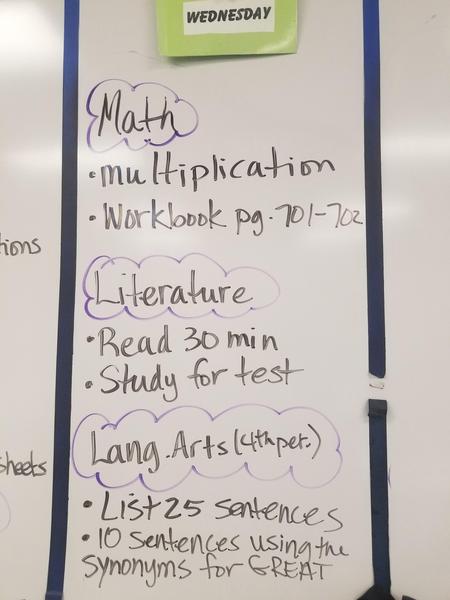 WEDNESDAY
Math
• multiplication
• Workbook pg. 701-702
tions
Literature
• Read 30 min
• Study for test
Lang. Arts (4th per.)
sheets
• List 25 sentences
• 10 sentences using the
synonyms for GREAT